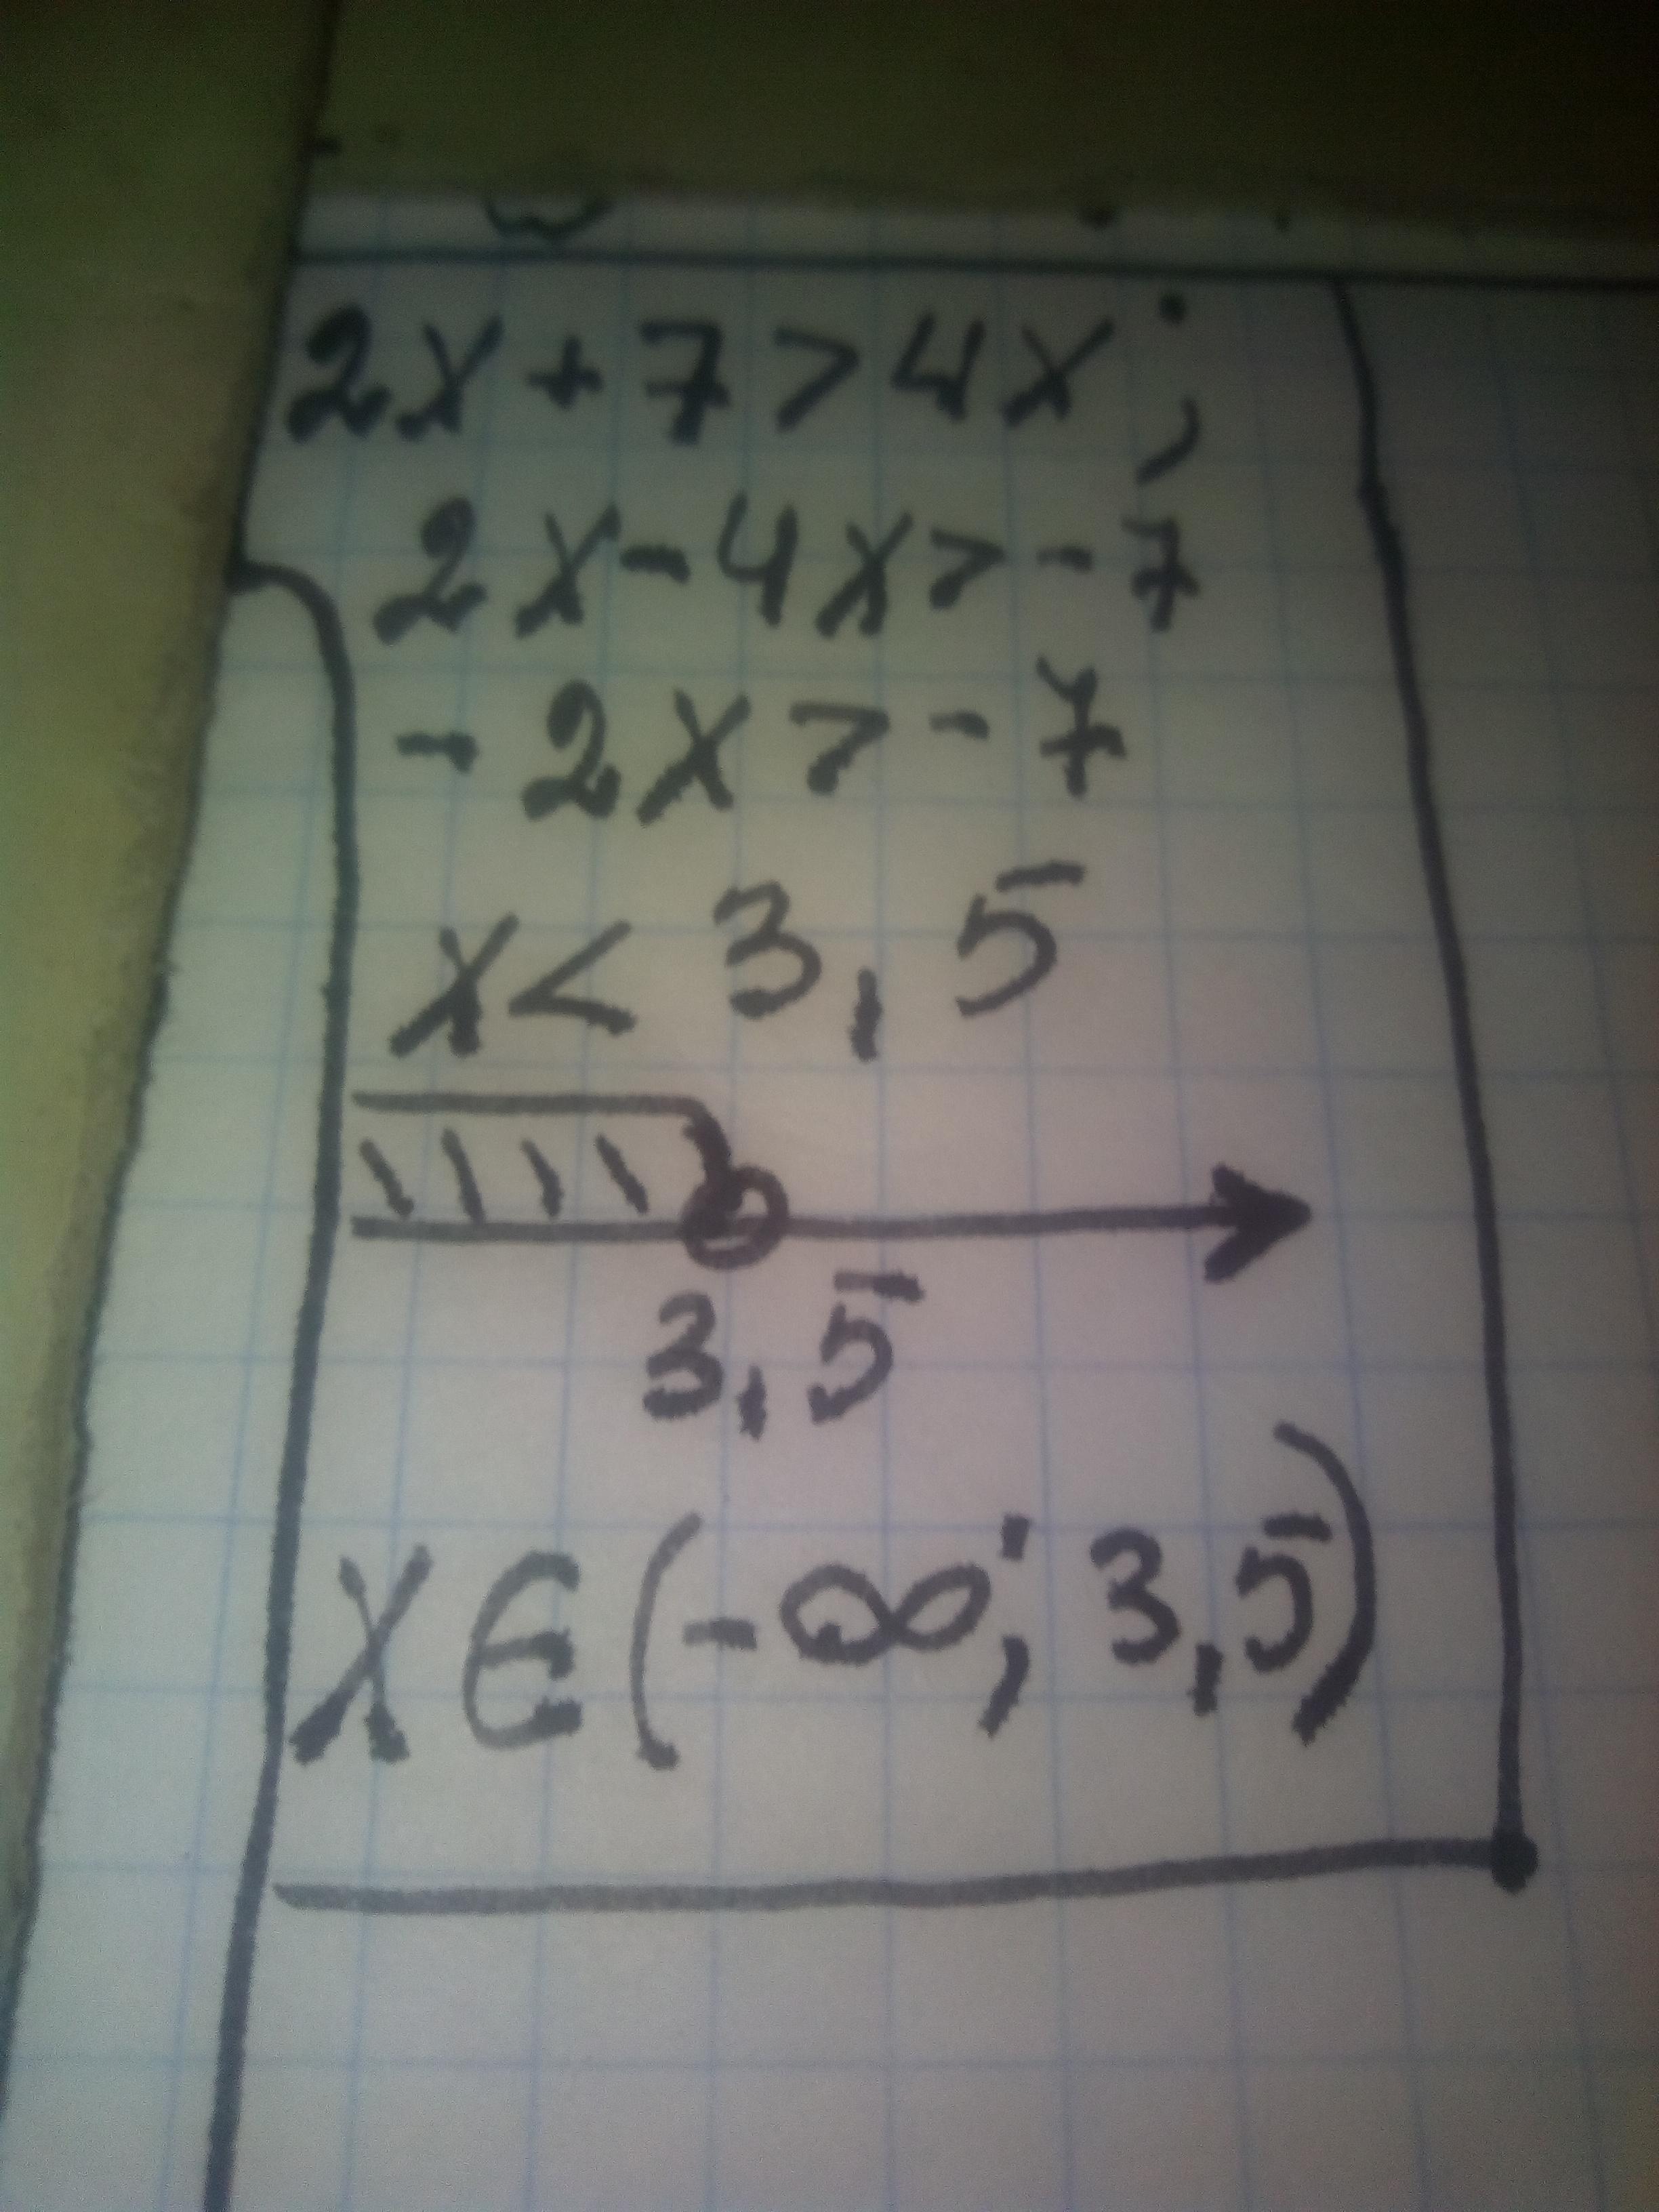 2x+7>4x;
2x-4x>-7
-2x>-7
x<3,5
3,5
x∈(-∞;3,5)